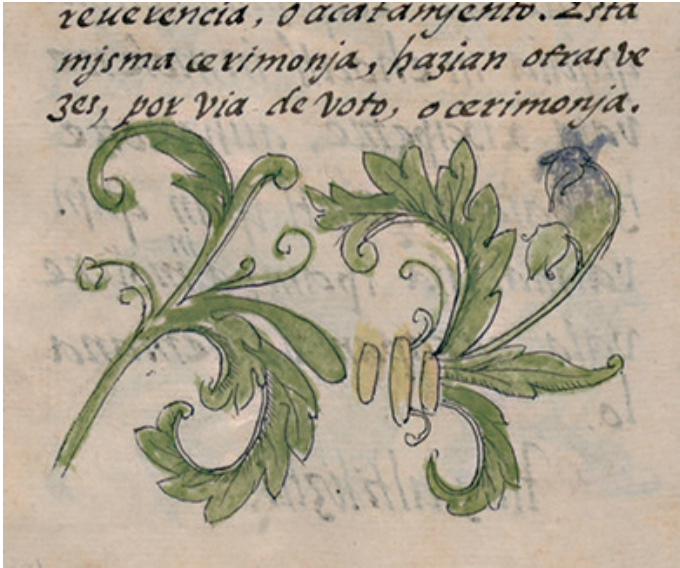 reuerencia, o acatamjento. Esta
mjsma cerimonja, hazian otras ve
zes, por via de voto, o cerimonja.